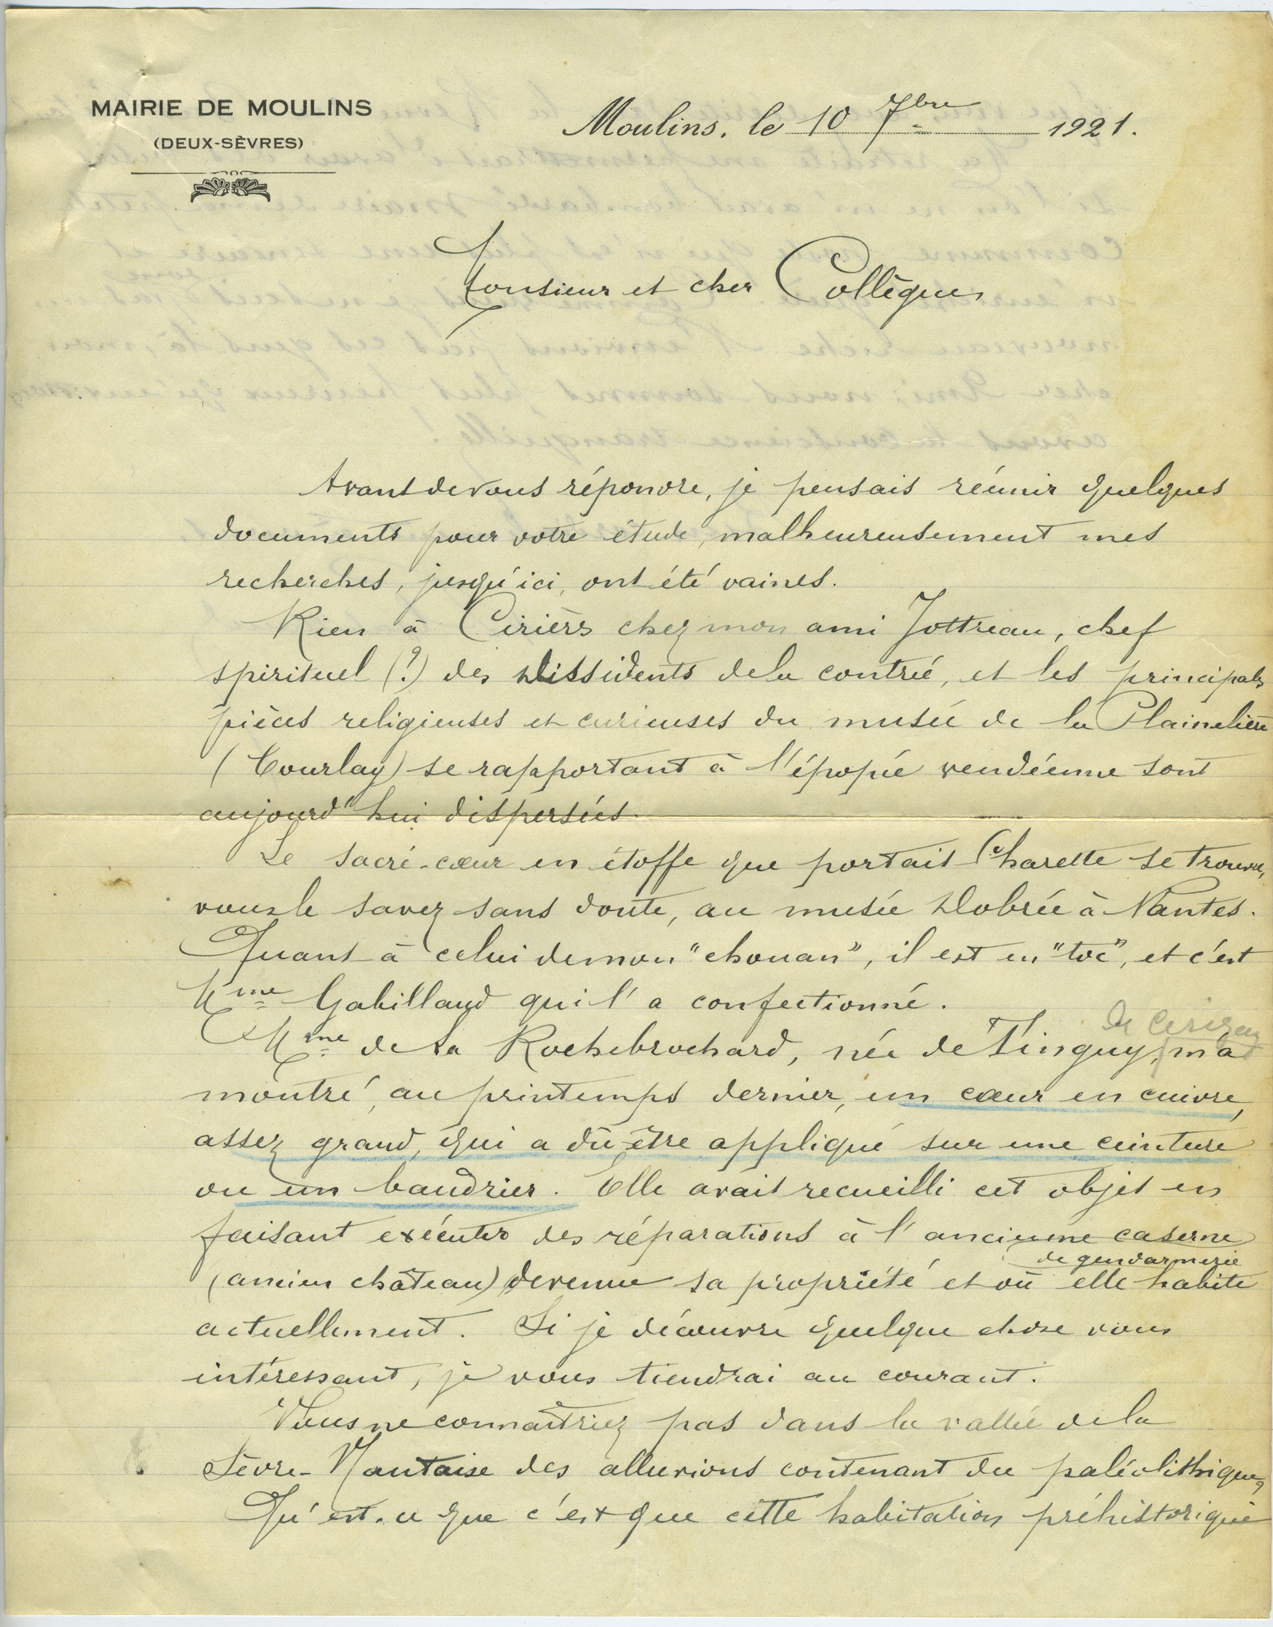 MAIRIE DE MOULINS
(DEUX-SÈVRES)
Moulins, le 10 7bre 1921.
Monsieur et cher Collègue,
Avant de vous répondre, je pensais réunir quelques
documents pour votre étude, malheureusement mes
recherches, jusqu'ici, ont été vaines.
Rien à Cirières chez mon ami Jottreau, chef
spirituel (?) des Dissidents de la contrée, et les principales
pièces religieuses et curieuses du musée de la Plainelière
(Courlay) se rapportant à l'épopée vendéenne sont
aujourd'hui dispersées.
Le sacré-cœur en étoffe que portait Charette se trouve,
vous le savez sans doute, au musée Dobrée à Nantes.
Quant à celui de mon "chouan", il est en "toc", et c'est
Mme Gabillaud qui l'a confectionné.
de Cerizay
Mme de la Rochebrochard, née de Tinguy, m'a
montré, au printemps dernier, un cœur en cuivre,
assez grand, qui a dû être appliqué sur une ceinture
ou un baudrier. Elle avait recueilli cet objet en
faisant exécuter des réparations à l'ancienne caserne
de gendarmerie
(ancien château) devenue sa propriété et où elle habite
actuellement. Si je découvre quelque chose vous
intéressant, je vous tiendrai au courant.
Vous ne connaîtriez pas dans la vallée de la
Sèvre-Nantaise des alluvions contenant du paléolithique,
Qu'est-ce que c'est que cette habitation préhistorique